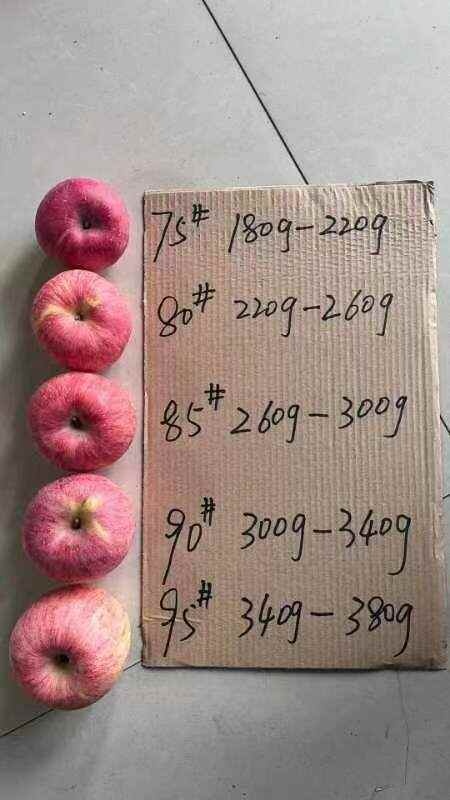 75# 180g-220g
80# 220g-260g
85# 260g-300g
90# 300g-340g
95# 340g-380g